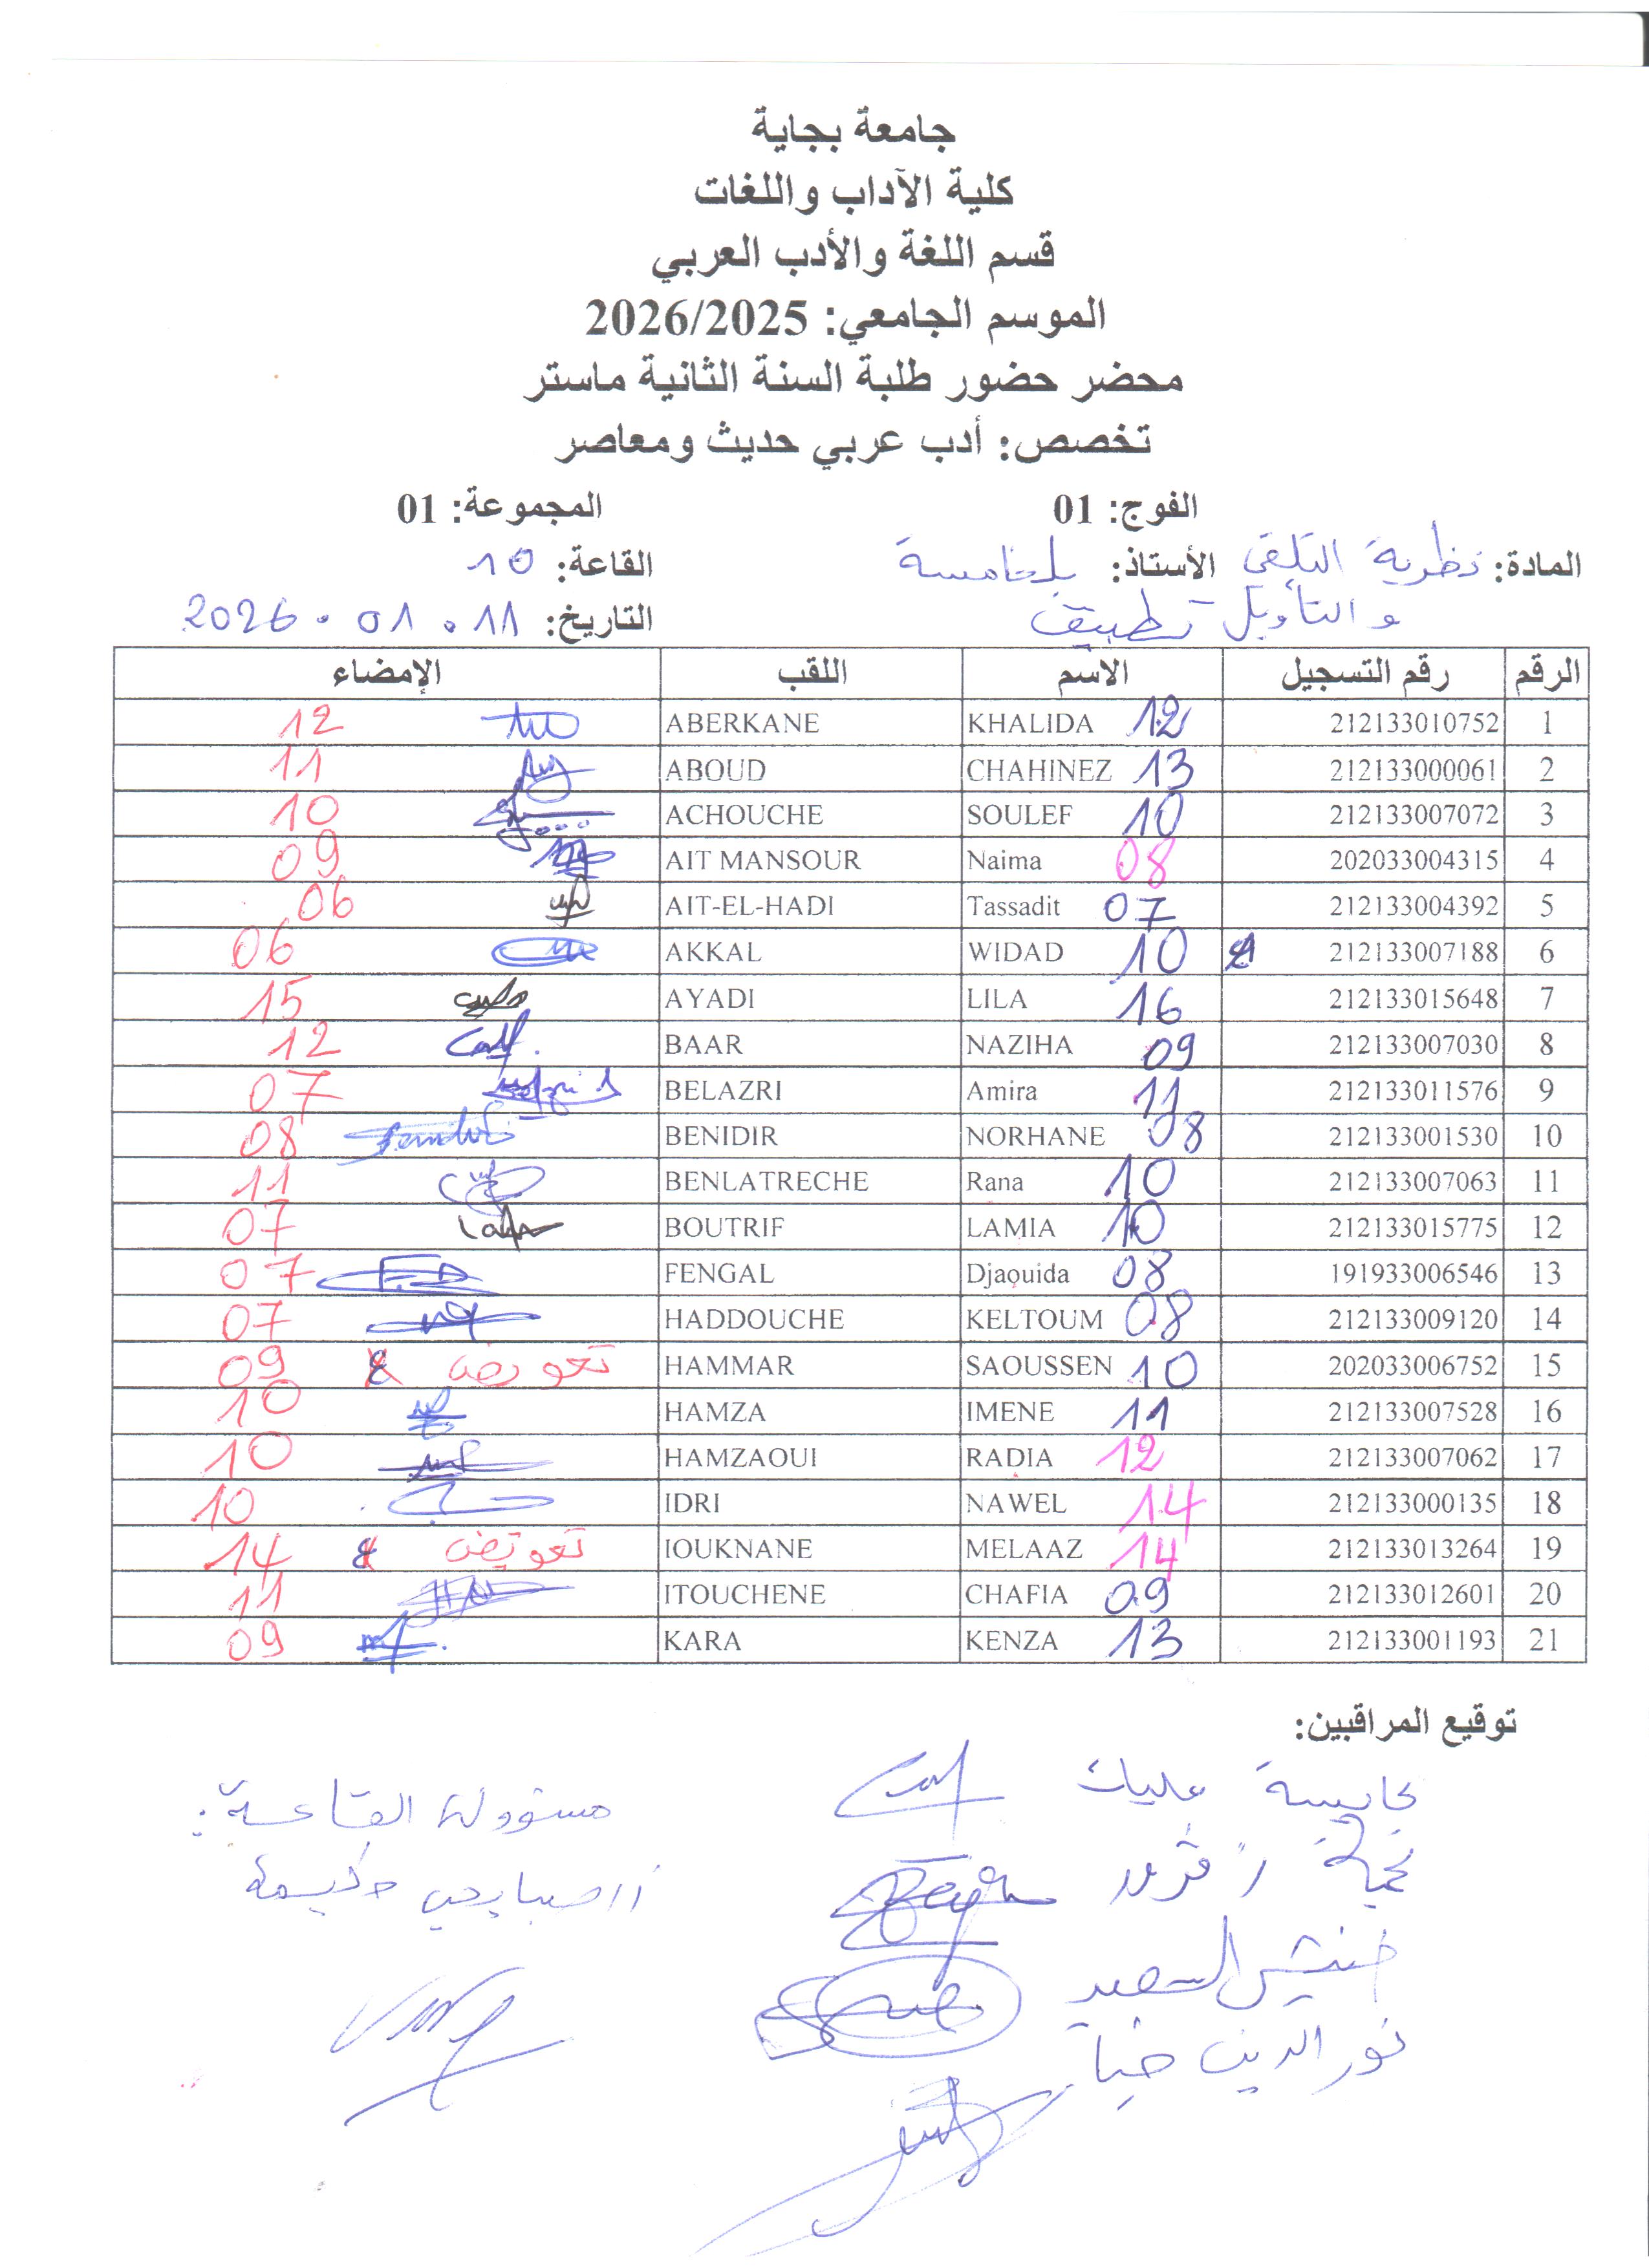 جامعة بجاية
كلية الآداب واللغات
قسم اللغة والأدب العربي
الموسم الجامعي: 2026/2025
محضر حضور طلبة السنة الثانية ماستر
تخصص: أدب عربي حديث ومعاصر
الفوج: 01 المجموعة: 01
المادة: نظرية التلقي الأستاذ: بلخامسة القاعة: 10
والتأويل تطبيق التاريخ: 11.01.2026
الرقم رقم التسجيل الاسم اللقب الإمضاء
1 212133010752 KHALIDA 12 ABERKANE 12
2 212133000061 CHAHINEZ 13 ABOUD 11
3 212133007072 SOULEF 10 ACHOUCHE 10
4 202033004315 Naima 08 AIT MANSOUR 09
5 212133004392 Tassadit 07 AIT-EL-HADI 06
6 212133007188 WIDAD 10 AKKAL 06
7 212133015648 LILA 16 AYADI 15
8 212133007030 NAZIHA 09 BAAR 12
9 212133011576 Amira 11 BELAZRI 07
10 212133001530 NORHANE 08 BENIDIR 08
11 212133007063 Rana 10 BENLATRECHE 11
12 212133015775 LAMIA 10 BOUTRIF 07
13 191933006546 Djaouida 08 FENGAL 07
14 212133009120 KELTOUM 08 HADDOUCHE 07
15 202033006752 SAOUSSEN 10 HAMMAR تعويض 09
16 212133007528 IMENE 11 HAMZA 10
17 212133007062 RADIA 12 HAMZAOUI 10
18 212133000135 NAWEL 14 IDRI 10
19 212133013264 MELAAZ 14 IOUKNANE تعويض 14
20 212133012601 CHAFIA 09 ITOUCHENE 11
21 212133001193 KENZA 13 KARA 09
توقيع المراقبين:
مسؤولة القاعة:
حكيمة
السعيد
نور الدين